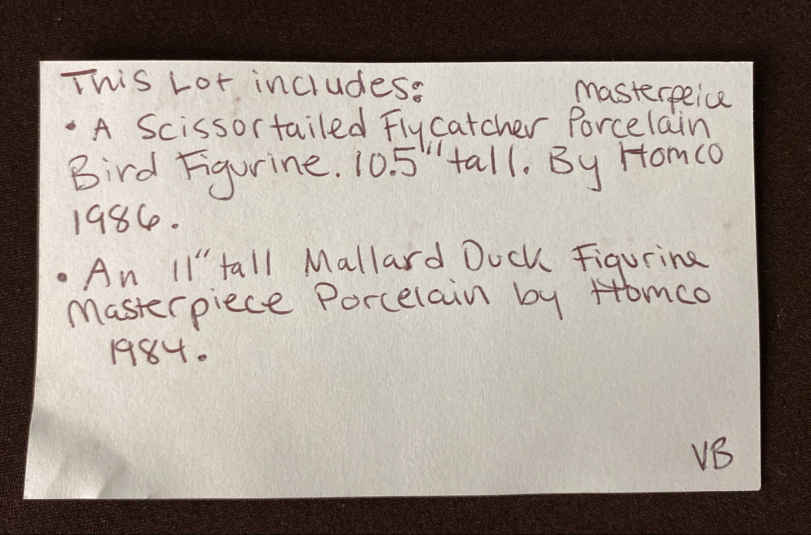 This Lot includes:
Masterpeice
• A Scissortailed Flycatcher Porcelain
Bird Figurine. 10.5"" tall. By Homco
1986.
• An 11" tall Mallard Duck Figurine
Masterpiece Porcelain by Homco
1984.
VB